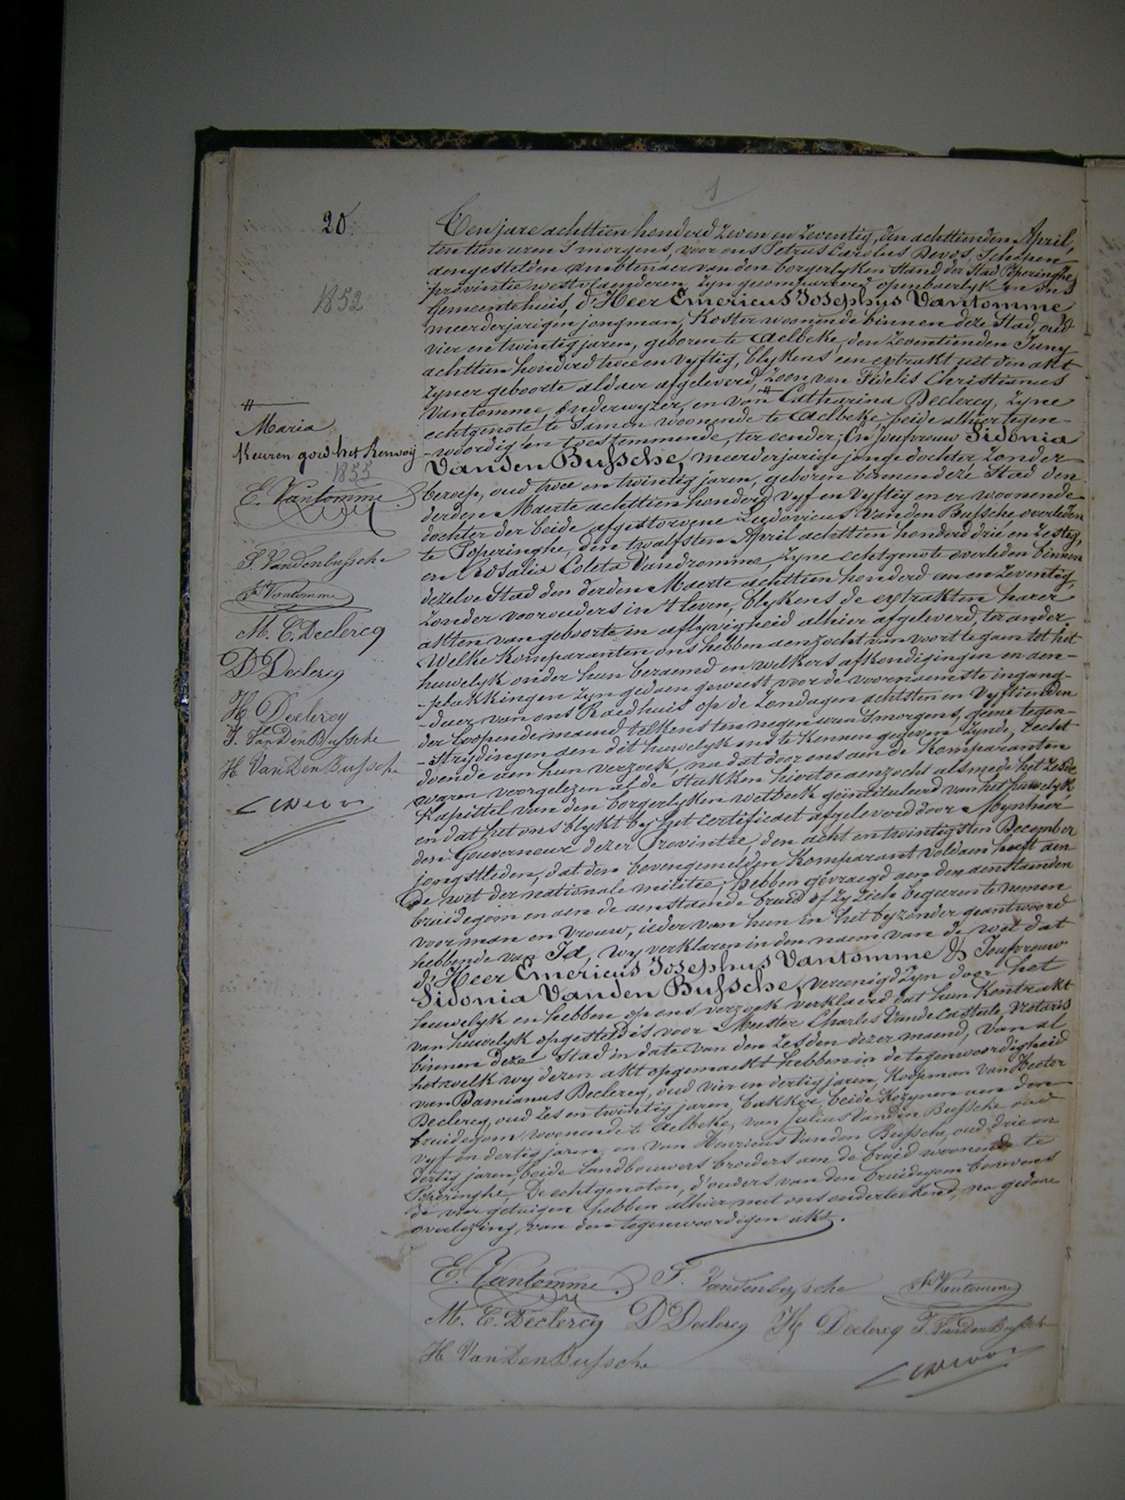 20.
1852
Maria
Keuren goed het Renvoij
1855
E. Vantomme
S. Vandenbyssche
F. Vantomme
M. C. Declercq
D Declercq
H Declercq
J. VanDenBussche
H VanDenBussche
Ten jare achttien honderd zeven en zeventig, den achttienden April,
ten tien uren 's morgens, voor ons Petrus Carolus Devos, Schepen
aengestelden ambtenaer van den borgerlyken stand der Stad Poperinghe
provintie westvlaenderen, zyn gecompareerd openbaerlyk in ons
Gemeentehuis, d'Heer Emericus Josephus Vantomme
meerderjarigen jongman, Koster woonende binnen deze Stad, oud
vier en twintig jaren, geboren te Aelbeke, den zeventienden Juny
achttien honderd twee en vyftig, blykens een extrakt uit den akt
zyner geboorte aldaer afgeleverd, zoon van Fidelis Christianus
Vantomme, Onderwyzer, en van Catharina Declercq, zyne
echtgenote te samen woonende te Aelbeke, beide alhier tegen-
-woordig en toestemmende, ter eender; En Jouffrouw Sidonia
Vanden Bussche, meerderjarige jonge dochter, zonder
beroep, oud twee en twintig jaren, geboren binnen deze Stad den
derden Maerte achttien honderd vyf en vyftig en er woonende
dochter der beide afgestorvene Ludovicus Vanden Bussche overleden
te Poperinghe, den twalfsten April achttien honderd drie en zestig,
en Rosalia Coleta Vandromme, zyne echtgenote overleden binnen
dezelve Stad den derden Maerte achttien honderd een en zeventig,
zonder voorouders in 't leven, blykens de extrakten harer
akten van geboorte en aflyvigheid alhier afgeleverd, ter ander.
Welke Komparanten ons hebben aenzocht van voort te gaen tot het
huwelyk onder hun beraemd en welkers afkondigingen en aen-
-plakkingen zyn gedaen geweest voor de voornaemste ingang-
-deur van ons Raedhuis op de Zondagen achtsten en vyftienden
der loopende maend telkens ten negen uren 's morgens, geene tegen-
-strydingen aen dit huwelyk ons te kennen gegeven zynde, recht
doende aen hun verzoek, na dat door ons aen de Komparanten
waren voorgelezen al de stukken hiertoe aenzocht alsmede het zesde
Kapittel van den borgerlyken wetboek geïntituleerd van het huwelyk
en dat het ons blykt by het certificaet afgeleverd door Mynheer
den Gouverneur dezer Provintie, den acht en twintigsten December
jongstleden, dat den bovengemelden Komparant voldaen heeft aen
de wet der nationale militie; hebben gevraegd aen den aenstaenden
bruidegom en aen de aenstaende bruid of zy zich begeeren te nemen
voor man en vrouw, ieder van hun in het byzonder geantwoord
hebbende van Ja, wy verklaren in den naem van de wet dat
d'Heer Emericus Josephus Vantomme & Jouffrouw
Sidonia Vanden Bussche, vereenigd zyn door het
huwelyk en hebben op ons verzoek verklaerd dat hun Kontrakt
van huwelyk opgesteld is voor Meester Charles Vandecasteele, Notaris
binnen deze Stad in date van den zesden dezer maend, van al
hetwelk wy dezen akt opgemaekt hebben in de tegenwoordigheid
van Damianus Declercq, oud vier en dertig jaren, Koopman van Hector
Declercq, oud zes en twintig jaren, bakker, beide Kozynen aen den
bruidegom, woonende te Aelbeke, van Julius Vanden Bussche oud
vyf en dertig jaren, en van Henricus Vanden Bussche, oud drie en
dertig jaren, beide landbouwers broeders aen de bruid woonende te
Poperinghe. De echtgenoten, d'ouders van den bruidegom benevens
de vier getuigen hebben alhier met ons onderteekend, na gedane
overlezing van den tegenwoordigen akt.
E. Vantomme S. Vandenbyssche F. Vantomme
M. C. Declercq D Declercq H Declercq J. VanDenBussche
H VanDenBussche